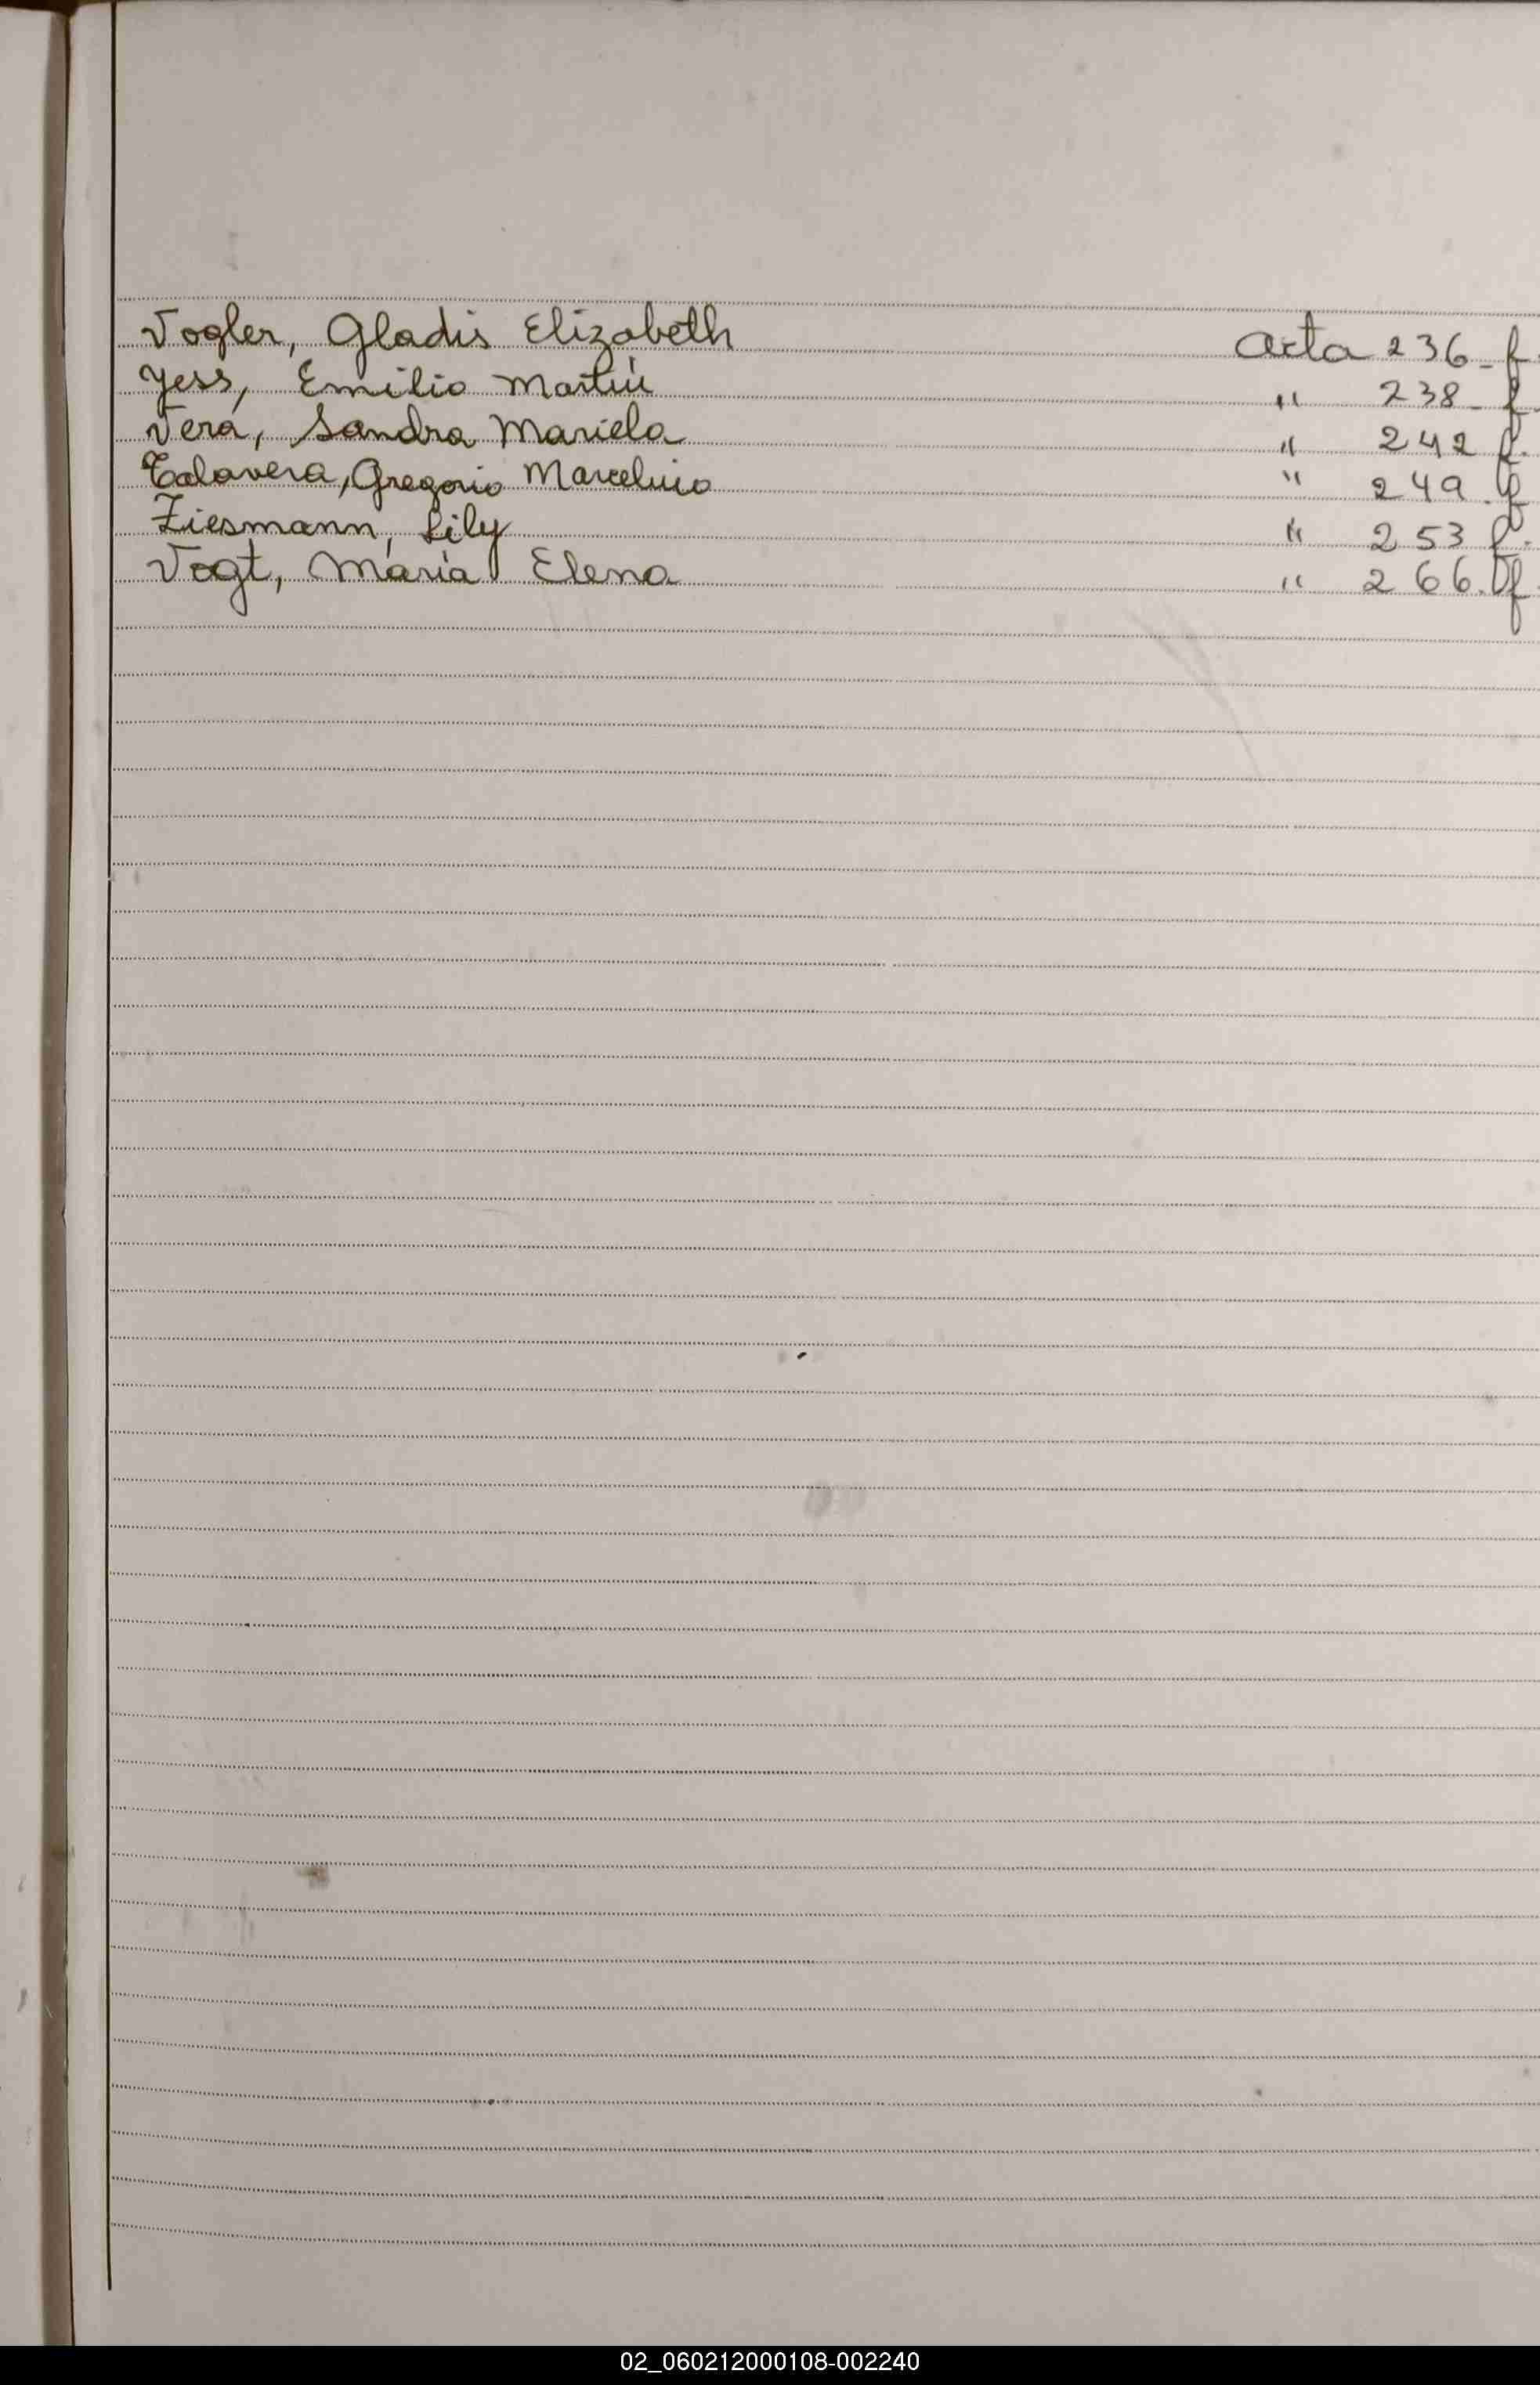 Vogler, Gladis Elizabeth acta 236_f.
Yess, Emilio Martín " 238_f.
Vera, Sandra Mariela " 242 f.
Talavera, Gregorio Marcelino " 249.f
Ziesmann, Lily " 253 f.
Vogt, María Elena " 266.f.
02_060212000108-002240